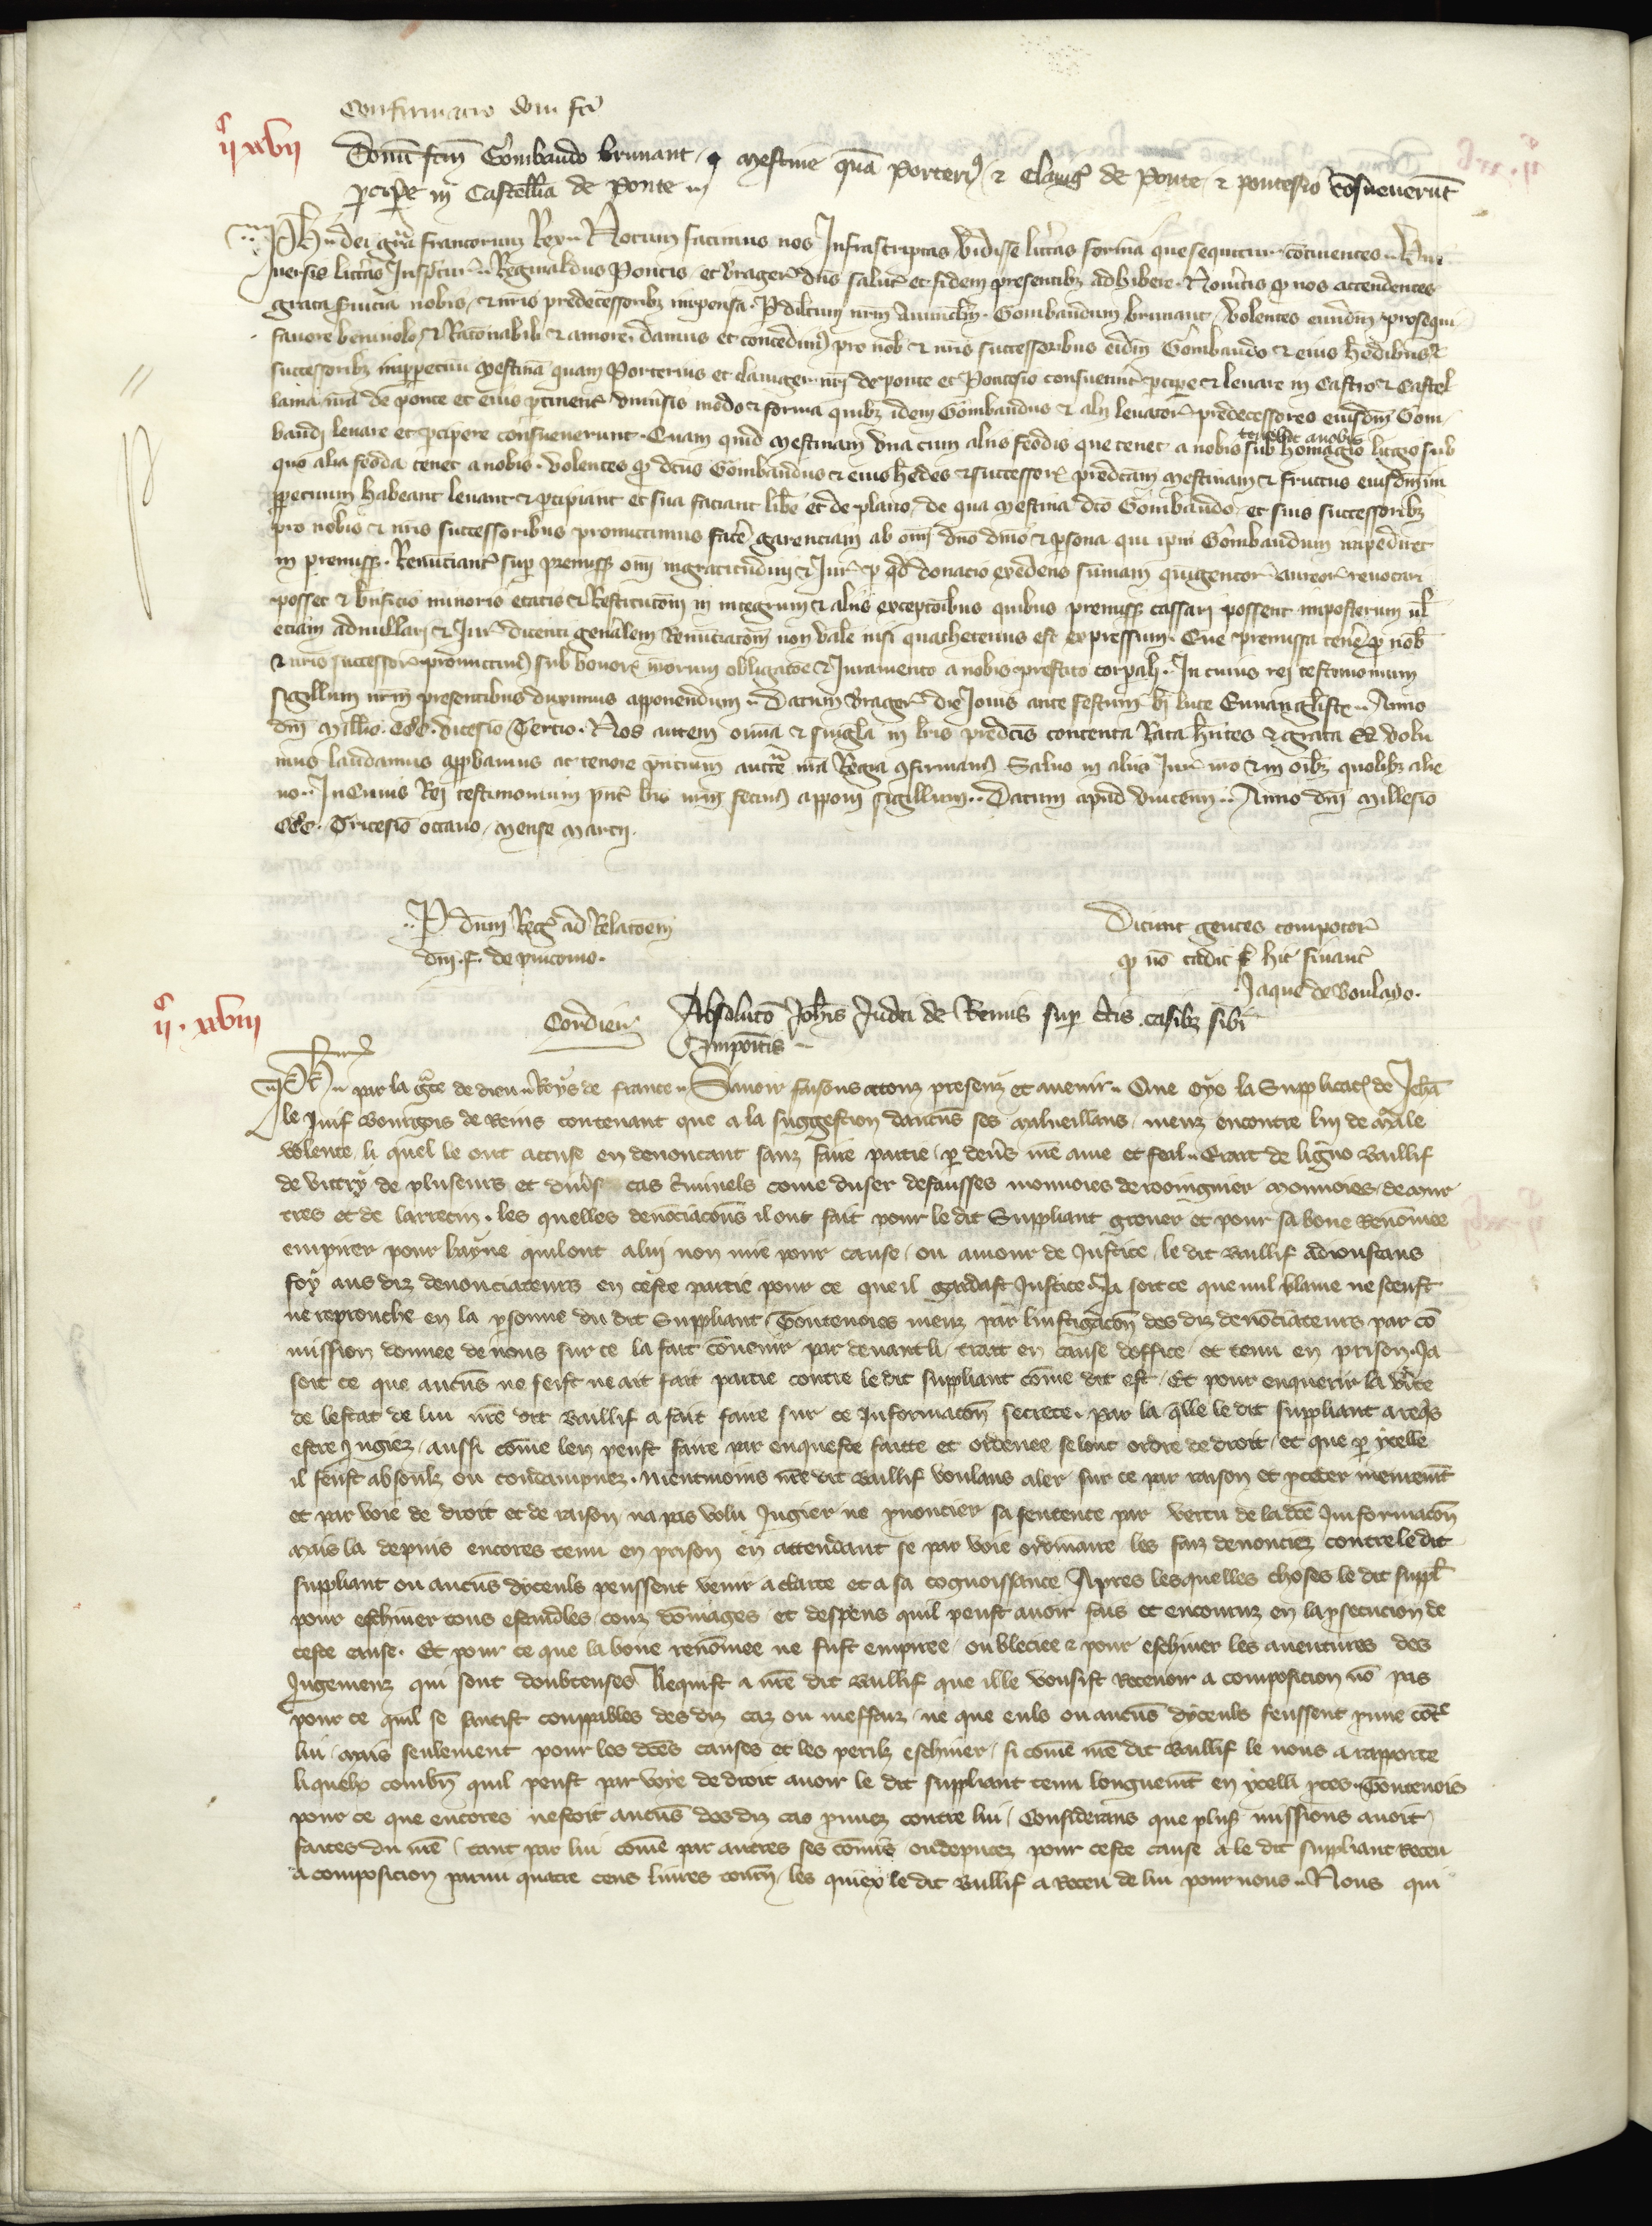 Confirmacio doni fci
IIc XVII
Donu fcm Gombaudo brunant, mestine qua Porteri9 & Clauig9 de Ponte & pontesio cosueuerut
pcipe in Castellia de Ponte
Ph dei gra francorum Rex Notum facimus nos Infrascriptas vidisse litteras forma que sequitur continentes Vni
uersis litteras Inspectur Reginaldus Pontis et Brager dns salut et fidem presentibz adhibere Noueritis q nos attendentes
grata seruicia nobis & nris predecessoribz impensa P dilcum nrm auuncl'm Gombaudum brunant volentes eundm prosequi
fauore beniuolo & Racionabili & amore damus et concedim9 pro nob & nris successoribus eidem Gombaudo & eius hedibus &
successoribz imperpetuu mestina quam Porterius et clauiger nri de ponte et Pontesio consueuert pcipe & leuare in Castro & Castel
lania nra de ponte et eius ptinent vniuersis modo & forma quibz idem Gombaudus & alij leuator predecessores eiusdm Gom
baudi leuare et pcipere consueuerunt Quam quid mestinam vna cum aliis feodis que tenet a nobis sub homagio litgio sub
tenebit a nobis
quo alia feoda tenet a nobis volentes q dcus Gombaudus & eius hedes & successor predcam mestinam & fructus eiusdm im
ppetuum habeant leuant & pcipiant et sua faciant libe et de plano de qua mestina dco Gombaudo et suis successoribz
pro nobis & nris successoribus promittimus face garentiam ab omi dno dnio & psona qui ipm Gombaudum impediret
in premiss Renunciant sup premiss omi ingratitudini & Jur p qd donacio excedens sumam quingentor aureor reuocari
posset & bnficio minoris etatis & Restitutoni in integrum & aliis exceptoibus quibus premiss cassari possent imposterum ul
etiam adnullari & Jur dicenti generalem Renunciacom non vale nisi quathetenus est expressum Que premissa tene p nob
& nris successor promittim9 sub bonor nrorum obligacoe & Juramento a nobis prestito corpali In cuius rei testimonium
sigillum nrm presentibus duximus apponendum Datum Brager die Jouis ante festum bi luce Euuangliste Anno
dni Millio CCC vicesio Tercio Nos autem omia & singla in lris predcis contenta Rata hntes & grata Ea volu
mus laudamus approbamus ac tenore pntium auctte nra Regia confirmam9 Saluo in aliis Jur nro & in oibz quolibz alie
no In Cuius Rei testimonium pnt lris nrm fecim9 apponi sigillum Datum apud vincenn Anno dni Millesio
CCC Tricesio octauo mense marcij
P dnm Reg ad Relacoem
dni f de pincono
Dicunt gentes compotor
q no cadit hic financ
Jaque de Boulayo
IIc XVIII
Cordier
Absoluco Johis Judei de Remis sup ctis casibz sibi
Impoitis
Ph par la gce de dieu Roys de france Sauoir faisons a touz presenz et auenir Que oye la Supplicac de Jeha
le Juif bourgois de Reins contenant que a la suggestion daucuns ses malueillans meuz encontre luy de male
volente, li quel le ont accuse en denoncant sanz faire partie, p deuers nre ame et feal Erart de ligno Baillif
de vitry de pluseurs et diuers cas criminels come duser de fausses monnoies de rooingnier monnoies de mur
tres et de larrecin, les quelles denonciacons il ont fait pour le dit Suppliant greuer et pour sa bone Renomee
empirer pour hayne quil ont a luy non mie pour cause ou amour de Justice, le dit Baillif adioustans
foy aus diz denonciateurs en ceste partie pour ce que il gardast Justice. Ja soit ce que nul blame ne sceust
ne reprouche en la psonne du dit Suppliant. Toutenoies meuz par linstigacon des diz denonciateurs par co
mission donnee de nous sur ce la fait conuenir par deuant li, trait en cause doffice, et tenu en prison. Ja
soit ce que aucuns ne seist ne ait fait partie contre le dit suppliant come dit est. Et pour enquerir la verite
de lestat de lui nre dit Baillif a fait faire sur ce Informacon secrete. par la qlle le dit suppliant a reqs
estre Jugiez, aussi come len peust faire par enqueste faitte et ordenee selonc ordre de droit, et que p ycelle
il feust absoulz ou condampnez. nientmoins nre dit Baillif voulans aler sur ce par raison et pceder meuremt
et par voie de droit et de raison, na pas volu Jugier ne pnoncier sa sentence par vertu de la dce Imformacon
mais la depuis encores tenu en prison en attendant se par voie ordinaire les faiz denonciez contre le dit
suppliant ou aucuns dyceuls peussent venir a clarte et a sa cognoissance Apres les quelles choses le dit suppl
pour eschiuer tous escandles, couz domages et despens quil peust auoir fais et encouruz en la psecucion de
ceste cause. Et pour ce que la bone renomee ne fust empiree ou bleciee & pour eschiuer les auentures des
Jugemenz qui sont doubteuses Requist a nre dit Baillif que il le vousist Receuoir a composicion no pas
pour ce quil se sentist coupables des diz caz ou meffaiz, ne que euls ou aucuns dyceuls feussent prouue cot
lui, mais seulement pour les dces causes et les perilz eschiuer, si come nre dit Baillif le nous a rapporte
li quelx combn quil peust par voye de droit auoir le dit suppliant tenu longuemt en ycelli pces. Toutenois
pour ce que encores nestoit aucuns des diz cas prouuez contre lui, Considerans que pluss missions auoit
faites du nre, tant par lui come par autres ses comis ou deputez pour ceste cause a le dit suppliant Receu
a composicion parmi quatre cens liures tourn, les quiex le dit Baillif a Receu de lui pour nous. Nous qui